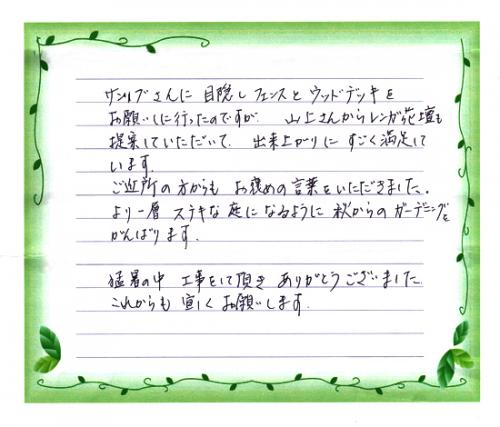 サンリブさんに 目隠しフェンスと ウッドデッキを
お願いしに行ったのですが、山上さんからレンガ花壇も
提案していただいて、出来上がりに すごく満足して
います。
ご近所の方からも お褒めの言葉をいただきました。
より一層 ステキな庭になるように 秋からのガーデニングを
がんばります。
猛暑の中 工事をして頂き ありがとうございました。
これからも 宜しくお願いします。